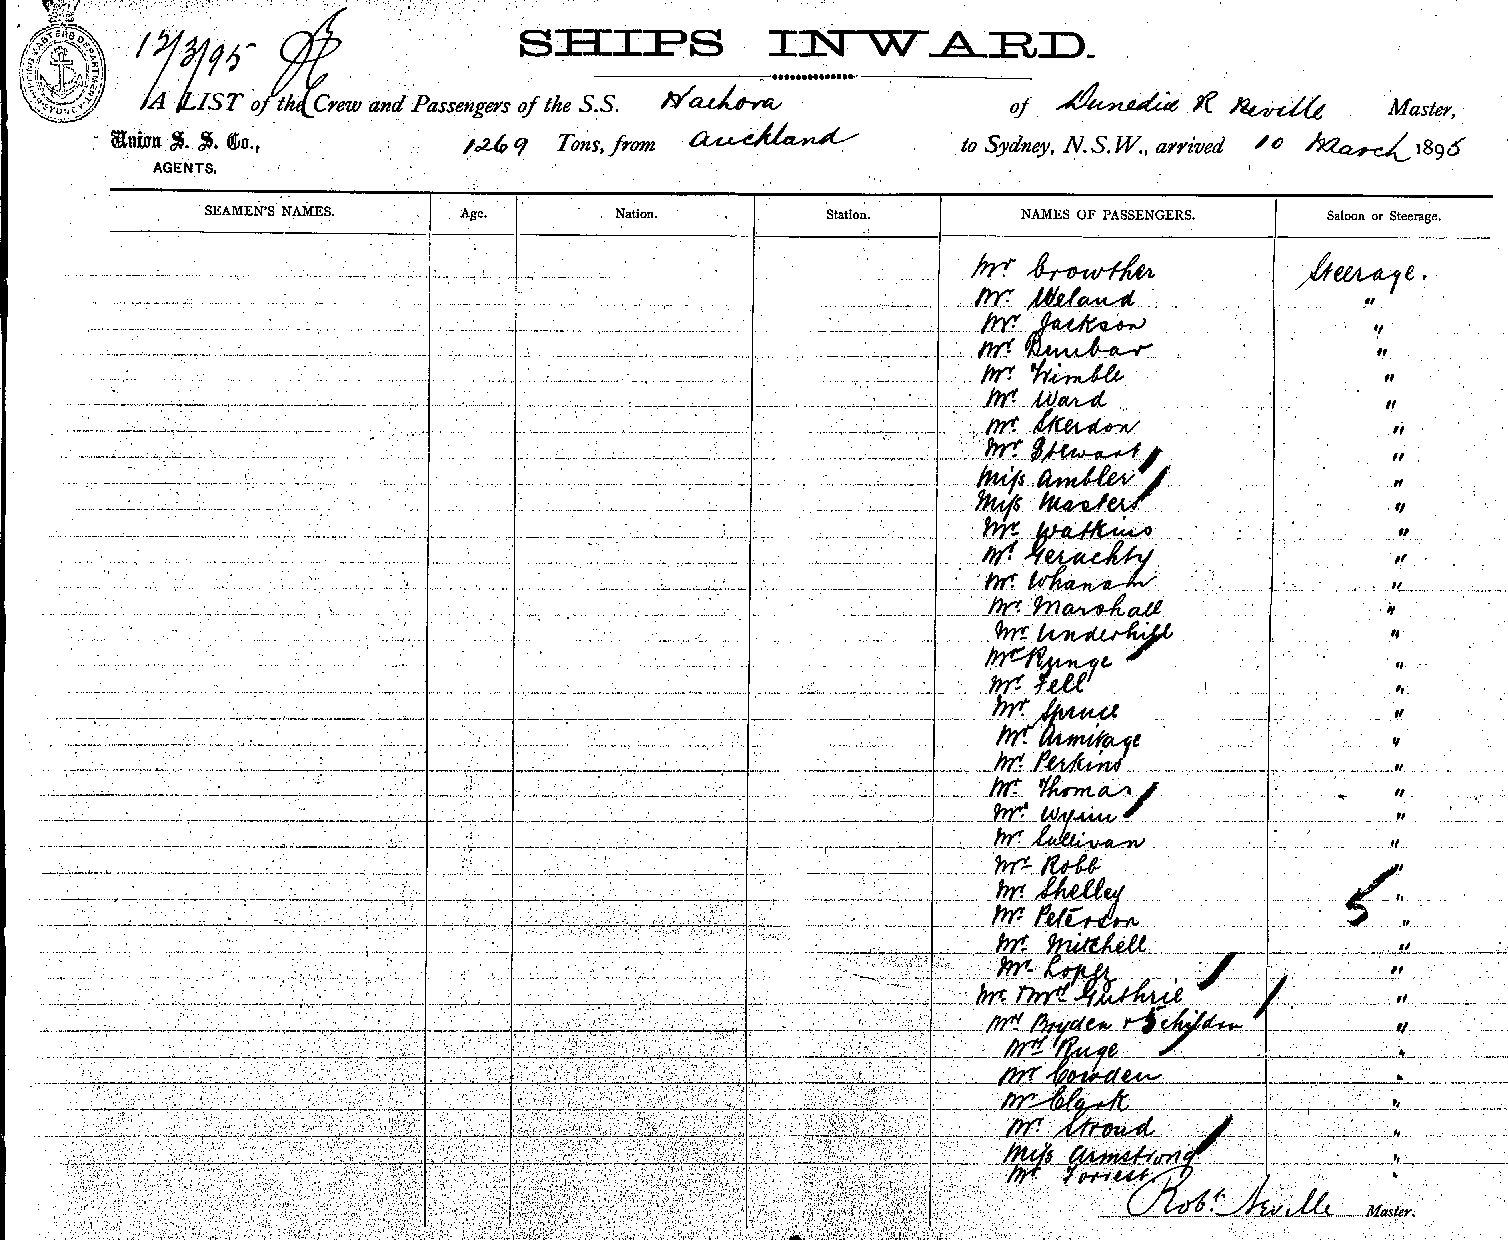 12/3/95
SHIPS INWARD.
A LIST of the Crew and Passengers of the S.S. Haehora of Dunedin R Neville Master,
Union S. S. Co., 1269 Tons, from Auckland to Sydney, N.S.W., arrived 10 March 1895
AGENTS.
SEAMEN'S NAMES. Age. Nation. Station. NAMES OF PASSENGERS. Saloon or Steerage.
Mr Crowther Steerage.
Mr. Weland "
Mr. Jackson "
Mr. Dunbar "
Mr. Wimble "
Mr. Ward "
Mr. Skerdon "
Mr. Stewart "
Miss Ambler "
Miss Masters "
Mr. Watkins "
Mr. Gerachty "
Mr. Whanam "
Mr. Marshall "
Mr. Underhill "
Mr. Runge "
Mr. Fell "
Mr. Spruce "
Mr. Armitage "
Mr. Perkins "
Mr. Thomas "
Mr. Wynn "
Mr. Sullivan "
Mr. Robb "
Mr. Shelley "
5
Mr. Peterson "
Mr. Mitchell "
Mr. Loper "
Mr. & Mrs Guthrie "
Mrs Bryden & 5 children "
Mrs Ruge "
Mr Cowden "
Mr Clark "
Mr. Stroud "
Miss Armstrong "
Mr. Forrest "
Robt. Neville Master.